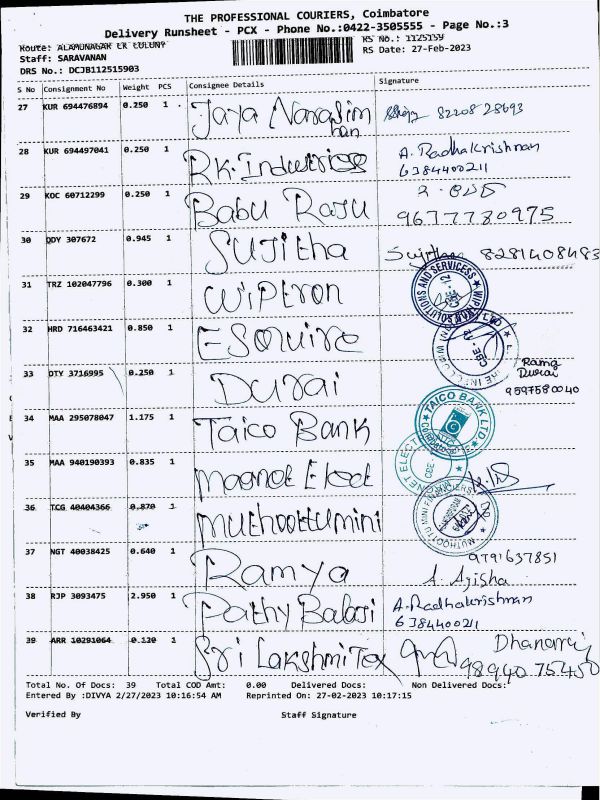 THE PROFESSIONAL COURIERS, Coimbatore
Delivery Runsheet - PCX - Phone No.:0422-3505555 - Page No.:3
Route: ALAMUNAGAR EK COLONY
RS No.: 1125159
Staff: SARAVANAN
RS Date: 27-Feb-2023
DRS No.: DCJB112515903
S No Consignment No Weight PCS Consignee Details Signature
27 KUR 694476894 0.250 1 Jaya Narasim han 82208 28693
28 KUR 694497041 0.250 1 R.K. Industries A. Radhakrishnan
6384400211
29 KOC 60712299 0.250 1 Babu Raju
9677780975
30 QDY 307672 0.945 1 Sujitha Sujitha 8281408483
31 TRZ 102047796 0.300 1 Wiptron
SOLUTIONS AND SERVICESS
32 HRD 716463421 0.850 1 Esquire
CBE - 12
33 DTY 3716995 0.250 1 Durai Rama
Durai
9597580040
34 MAA 295078047 1.175 1 Taico Bank
TAICO BANK LTD
35 MAA 940190393 0.835 1 Magnet Elect
36 TCG 40404366 0.870 1 Muthoottu mini
MUTHOOTTU MINI FINANCIERS
37 NGT 40038425 0.640 1 Ramya 9791637851
A. Ajisha
38 RJP 3093475 2.950 1 Pathy Balaji A. Radhakrishnan
6384400211
39 ARR 10291064 0.120 1 Sri Lakshmi Tex Dhanarraj
98940 75450
Total No. Of Docs: 39 Total COD Amt: 0.00 Delivered Docs: Non Delivered Docs:
Entered By :DIVYA 2/27/2023 10:16:54 AM Reprinted On: 27-02-2023 10:17:15
Verified By Staff Signature